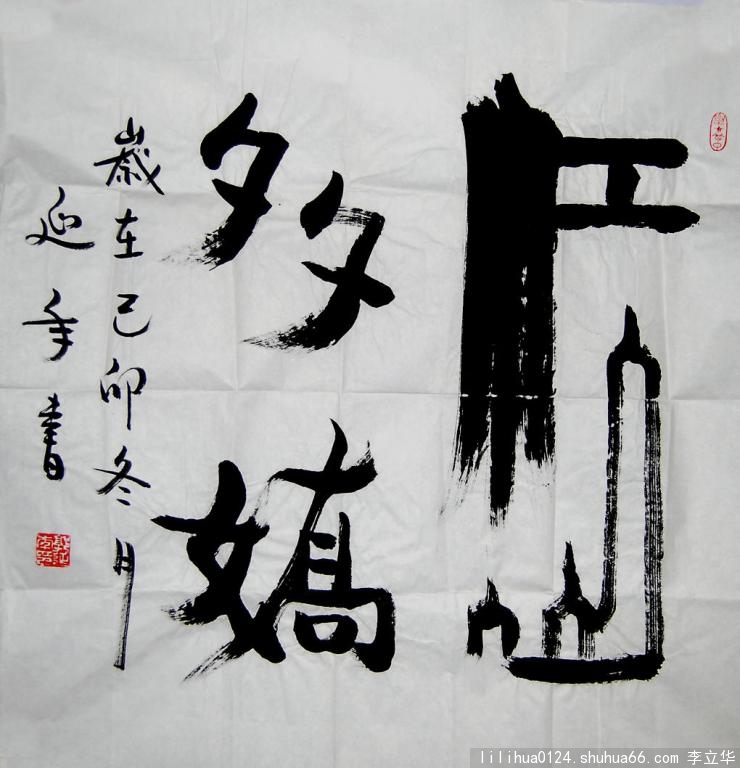 江山
多嬌
歲在己卯冬月
延年書
lilihua0124.shuhua66.com 李立华